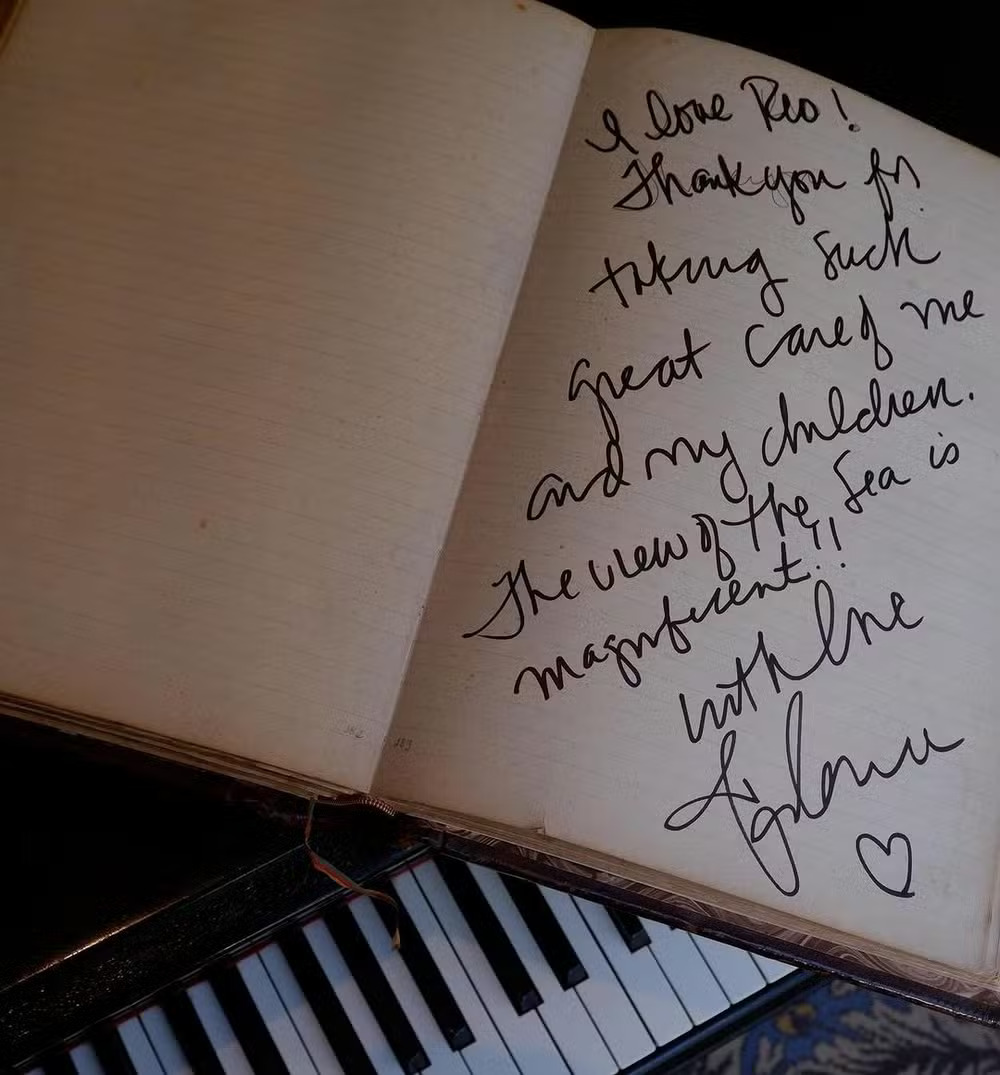 I love Rio!
Thank you for
taking such
great care of me
and my children.
The view of the Sea is
magnificent!!
with love
182
183